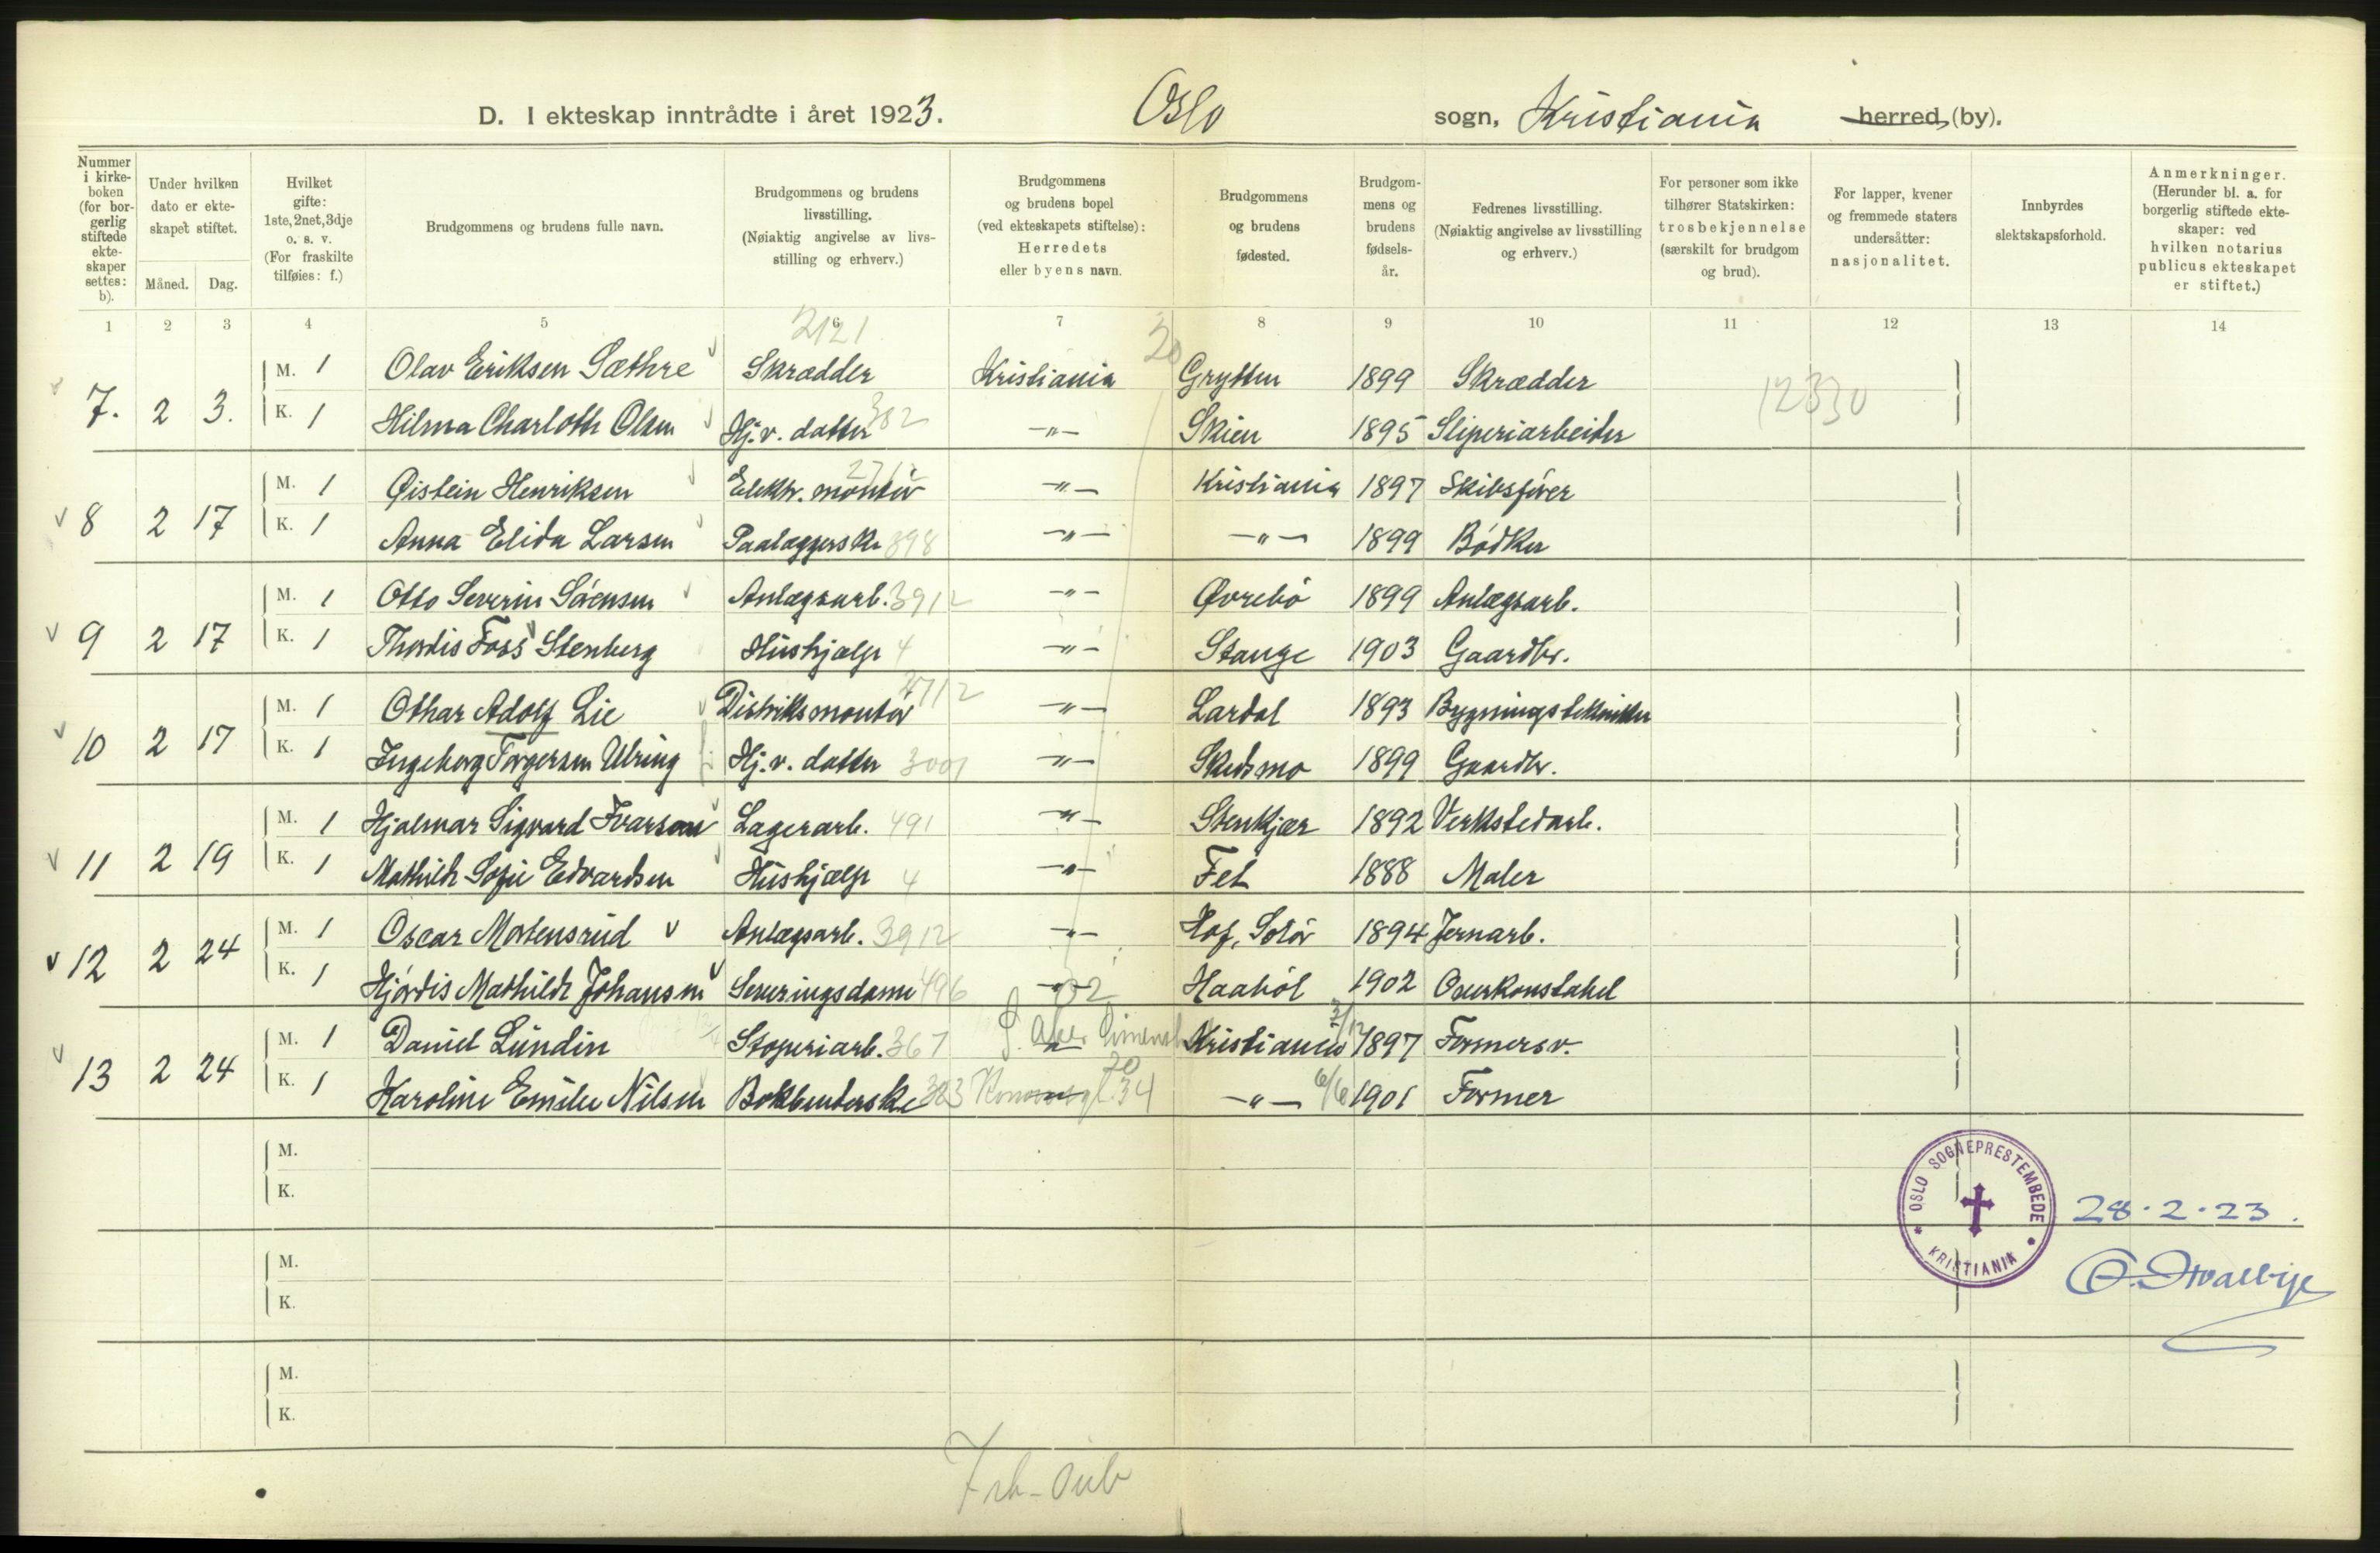 D. I ekteskap inntrådte i året 1923. Oslo sogn, Kristiania herred, (by).
Nummer i kirke-boken (for bor-gerlig stiftede ekte-skaper settes: b).
Under hvilken dato er ekte-skapet stiftet.
Måned. Dag.
Hvilket gifte: 1ste, 2net, 3dje o. s. v. (For fraskilte tilføies: f.)
Brudgommens og brudens fulle navn.
Brudgommens og brudens livsstilling. (Nøiaktig angivelse av livs-stilling og erhverv.)
Brudgommens og brudens bopel (ved ekteskapets stiftelse): Herredets eller byens navn.
Brudgommens og brudens fødested.
Brudgom-mens og brudens fødsels-år.
Fedrenes livsstilling. (Nøiaktig angivelse av livsstilling og erhverv.)
For personer som ikke tilhører Statskirken: trosbekjennelse (særskilt for brudgom og brud).
For lapper, kvener og fremmede staters undersåtter: nasjonalitet.
Innbyrdes slektskapsforhold.
Anmerkninger. (Herunder bl. a. for borgerlig stiftede ekte-skaper: ved hvilken notarius publicus ekteskapet er stiftet.)
1 2 3 4 5 6 7 8 9 10 11 12 13 14
2121 20
7. 2 3. M. 1 Olav Eriksen Sæthre Skrædder Kristiania Grytten 1899 Skrædder 12330
K. 1 Hilma Charloth Olsen Hj.v. datter 382 -"- Skien 1895 Sliperiarbeider
8 2 17 M. 1 Øistein Henriksen Elektr. montør -"- Kristiania 1897 Skibsfører
K. 1 Anna Elida Larsen Paalæggerske 398 -"- -"- 1899 Bødker
9 2 17 M. 1 Otto Severin Sørensen Anlægsarb. 3912 -"- Øvrebø 1899 Anlægsarb.
K. 1 Thordis Foss Stenberg Hushjælp 4 -"- Stange 1903 Gaardbr.
10 2 17 M. 1 Othar Adolf Lie Distriktsmontør 2712 -"- Lardal 1893 Bygningstekniker
K. 1 Ingeborg Torgersen Ulring Hj.v. datter 3001 -"- Skedsmo 1899 Gaardbr.
11 2 19 M. 1 Hjalmar Sigvard Ivarson Lagerarb. 491 -"- Stenkjær 1892 Verkstedarb.
K. 1 Mathilde Sofie Edvardsen Hushjælp 4 -"- Fet 1888 Maler
12 2 24 M. 1 Oscar Mortensrud Anlægsarb. 3912 -"- Hof, Solør 1894 Jernarb.
K. 1 Hjørdis Mathilde Johansen Serveringsdame 496 -"- Haabøl 1902 Overkonstabel
13 2 24 M. 1 Daniel Lundin Støperiarb. 367 -"- Kristiania 1897 Formersv.
K. 1 Karoline Emilie Nilsen Bokbinderske 383 34 -"- 6/6 1901 Former
M.
K.
M.
K.
M.
K.
OSLO SOGNEPRESTEMBEDE
KRISTIANIA
28.2.23.